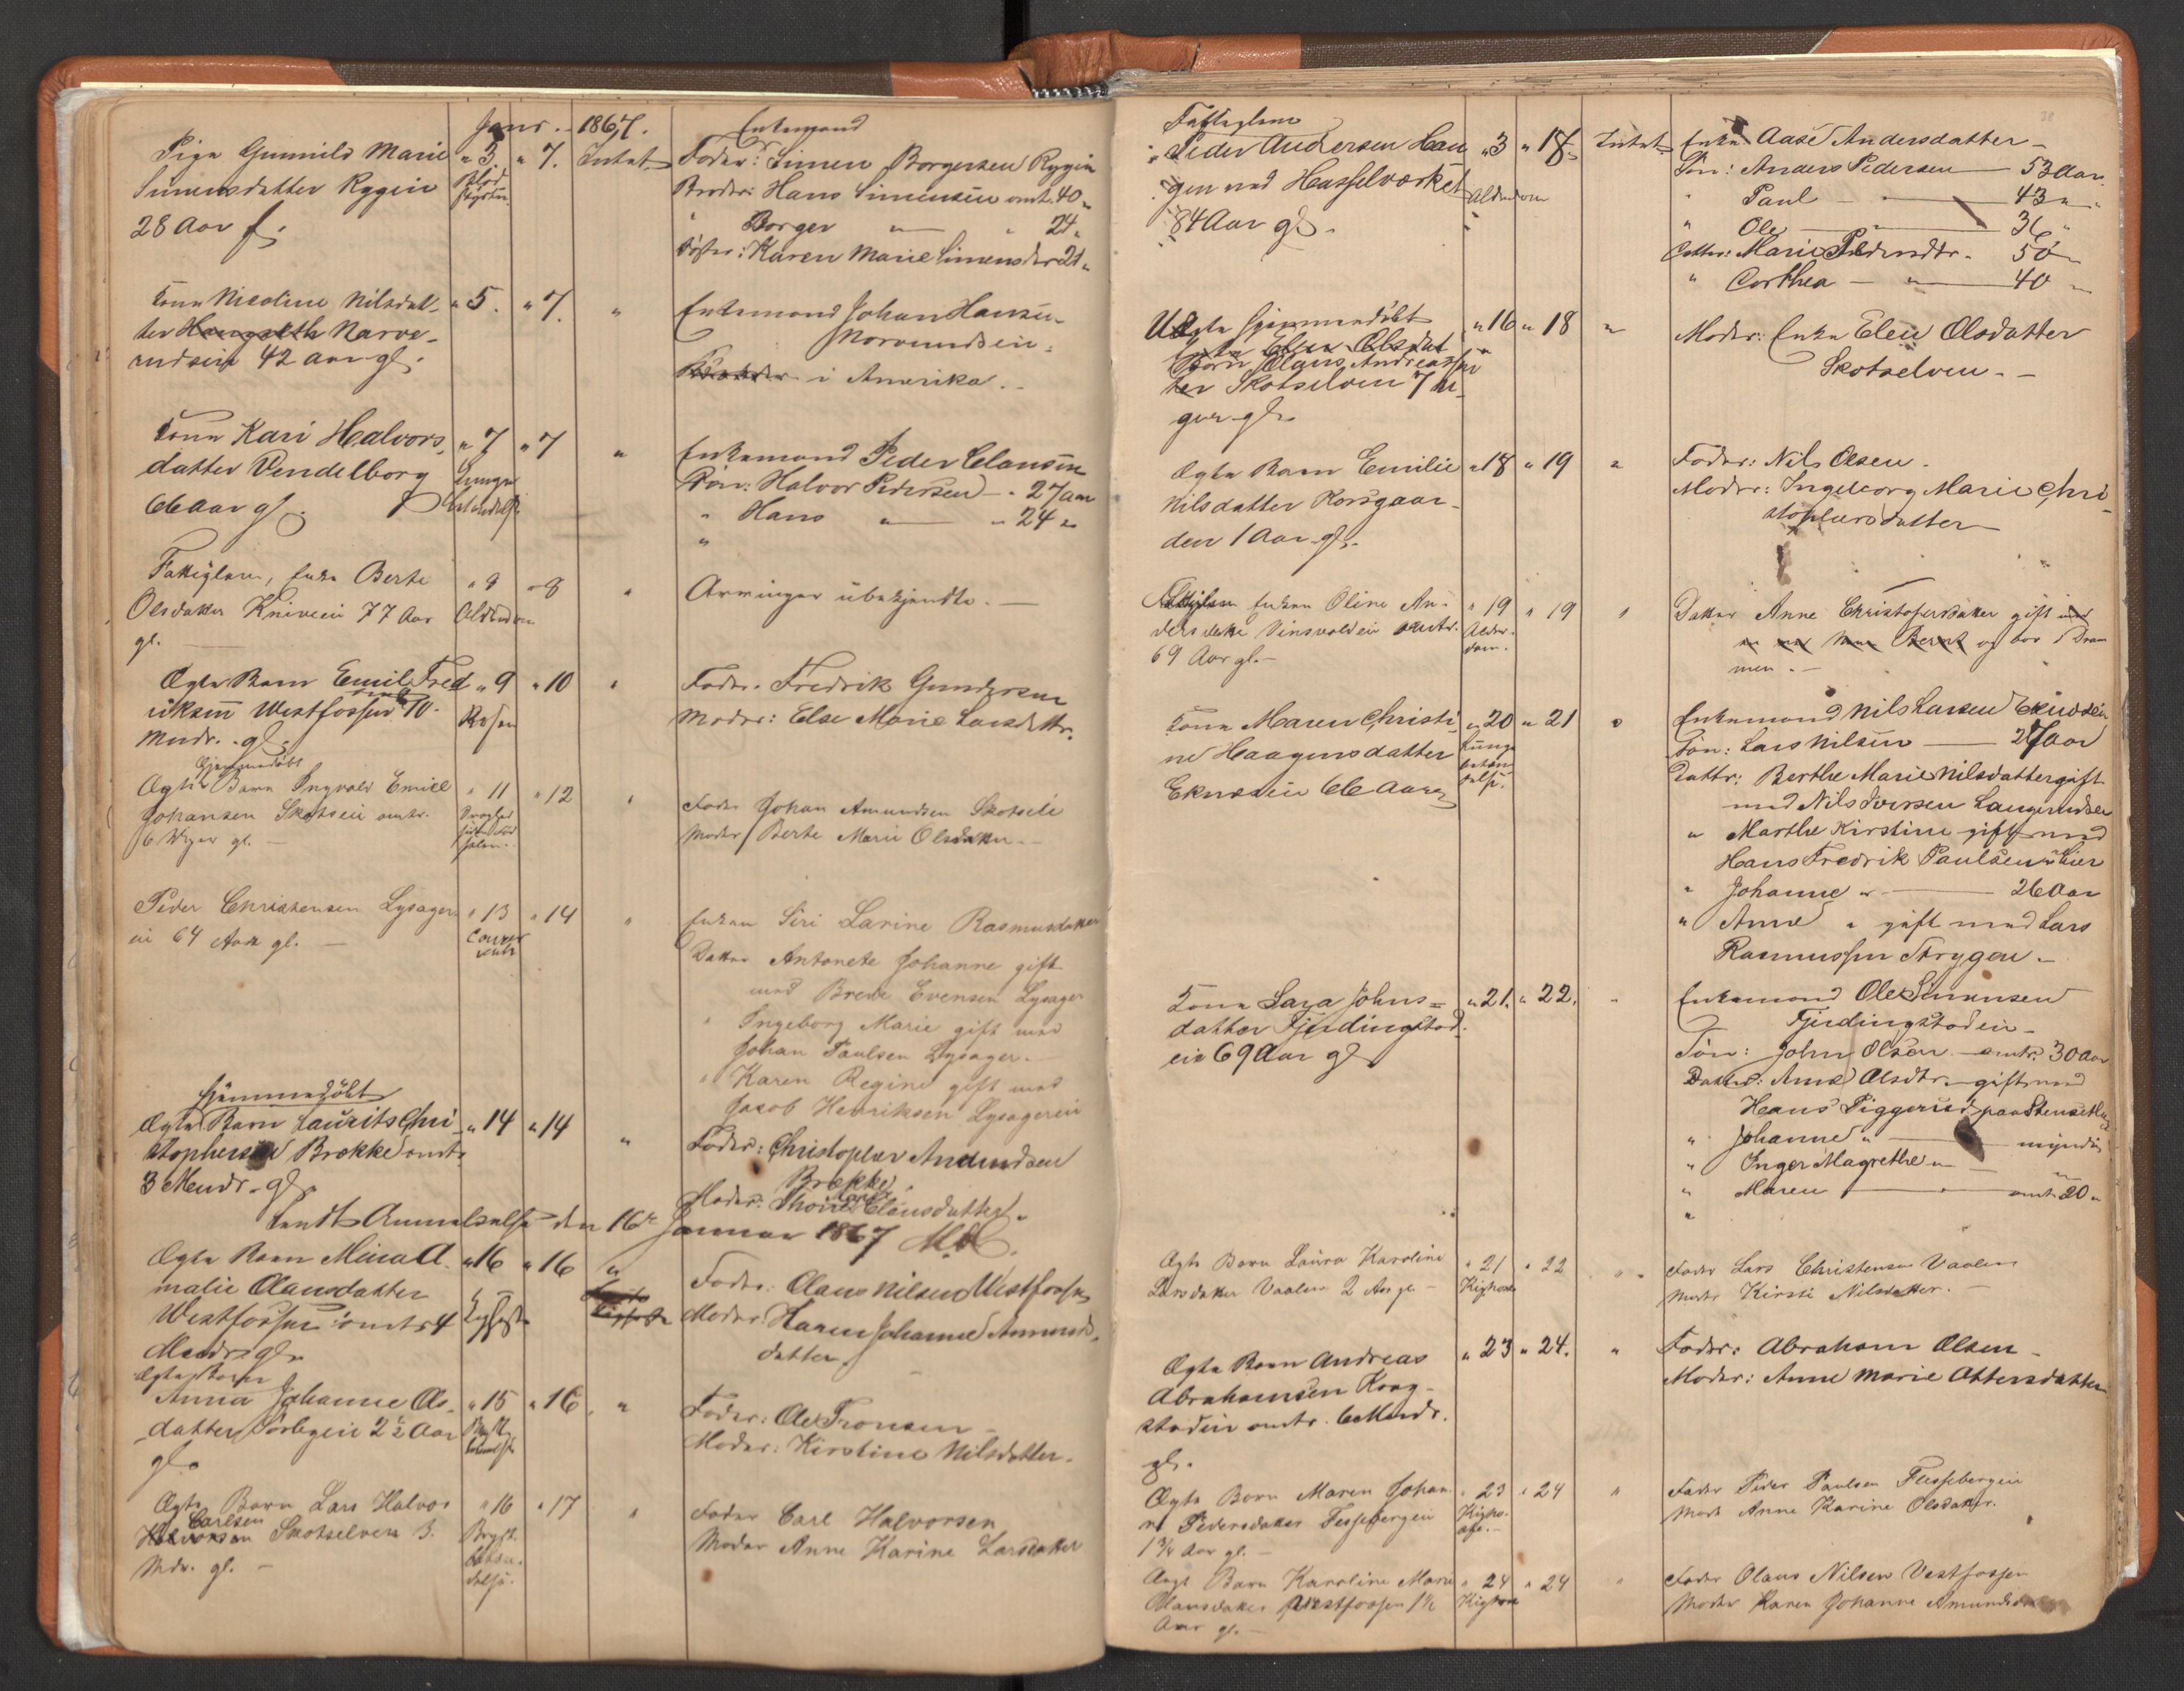 Janr. 1867.
Pige Gunnild Marie " 3. " 7. Intet
Simensdatter Rygein Blodstyrtn.
28 Aar gl.
Enkemand
Fader: Simen Borgersen Rygein
Broder: Hans Simensen omtr. 40 "
" Borger " " 24 "
Søster: Karen Marie Simensdtr 21 "
Kone Nicoline Nilsdat- " 5. " 7. "
ter Narve-
rudein 42 Aar gl.
Enkemand Johan Hansen
Narverudein.
i Amerika.
Kone Kari Halvors- " 7 " 7 "
datter Vendelborg Lunge-
66 Aar gl. betændelse
Enkemand Peder Clausen
Søn: Halvor Pedersen - 27 aar
" Hans " " 24 "
"
Fattiglem, Enke Berte " 8 " 8 "
Olsdatter Kniveein 77 Aar Alderdom
gl.
Arvinger ubekjendte.
Ægte Barn Emil Fred- " 9 " 10 "
riksen Westfossen omtr. 10 Rosen
Mndr. gl.
Fader: Fredrik Gundersen
Moder: Else Marie Larsdttr.
Hjemmedøbt
Ægte Barn Ingvald Emil " 11 " 12 "
Johansen Skotseie omtr.
6 Uger gl.
Fader Johan Amundsen Skotseie
Moder Berte Marie Olsdatter
Peder Christensen Lysager- " 13 " 14 "
ei 64 Aar gl.
Enken Siri Larine Rasmusdatter
Datter Antonete Johanne gift
med Brede Evensen Lysager
" Ingeborg Marie gift med
Johan Paulsen Lysager.
" Karen Regine gift med
Jacob Henriksen Lysagerein
Hjemmedøbt
Ægte Barn Laurits Chri- " 14 " 14 "
stophersen Brække omtr.
3 Mndr. gl.
Fader: Christopher Amundsen
Brække.
Moder: Clausdatter.
Sendt Anmeldelse den 16de Januar 1867
Ægte Barn Mina A- " 16 " 16 "
malie Olausdatter
Westfossen omtr. 4 Kighoste
Mndr. gl.
Fader: Olaus Nilsen Westfossen
Moder Karen Johanne Amunds-
datter
Ægte Barn
Anna Johanne Ols- " 15 " 16. "
datter Sørbyein 2½ Aar Bryst-
gl. betændelse
Fader: Ole Tronsen
Moder: Kirstine Nilsdatter.
Ægte Barn Lars Halvor " 16 " 17 "
Carlsen
Skotselven 3. Bryst-
Mdr. gl. betæn-
delse.
Fader Carl Halvorsen
Moder Anne Karine Larsdatter
Fattiglem
Peder Andersen Hau- " 3 " 18 Intet
gen ved Hasselværket Alderdom
84 Aar gl.
Enke Aase Andersdatter
Søn: Anders Pedersen 53 Aar.
" Paul " 43 "
" Ole "
Datter: Marie Pedersdtr. 50 "
" Dorthea " 40 "
Uægte hjemmedøbt " 16 " 18 "
Barn Olaus Andreassen
Skotselven 7 U-
ger gl.
Moder: Enke Elen Olsdatter
Skotselven.
Ægte Barn Emilie " 18 " 19 "
Nilsdatter Korsgaar-
den 1 Aar gl.
Fader: Nils Olsen.
Moder: Ingeborg Marie Chri-
stophersdatter
Fattiglem Enken Oline An- " 19 " 19 "
dersdatter Vinsvoldein omtr. Alder-
69 Aar gl. dom.
Datter Anne Christofersdatter gift
og bor i Dram
men.
Kone Maren Christi- " 20 " 21 "
ne Haagensdatter Lunge-
Eknesein 66 Aar gl. betæn-
delse.
Enkemand Nils Larsen Eknesein
Søn: Lars Nilsen 27 Aar
Datter: Berthe Marie Nilsdatter gift
med Nils Iversen Langerudein
" Marthe Kirstine gift med
Hans Fredrik Paulsen i Lier
" Johanne " 26 Aar
" Anne " gift med Lars
Rasmussen Strygen.
Kone Sara Johns- " 21. " 22. "
datter Fjerdingstad-
ein 69 Aar gl.
Enkemand Ole Simensen
Fjerdingstadein
Søn: John Olsen omtr. 30 Aar
Datter: Anne Olsdtr. gift med
Hans Siggerud paa
" Johanne " myndig
" Inger Magrethe " "
" Maren " omtr. 20 "
"
Ægte Barn Laura Karoline " 21 " 22 "
Larsdatter Vaalen 2 Aar gl. Kighoste
Fader Lars Christensen Vaalen
Moder Kirsti Nilsdatter.
Ægte Barn Andreas " 23 " 24. "
Abrahamsen Krog-
stadein omtr. 6 Mndr.
gl.
Fader: Abraham Olsen
Moder: Anne Marie Ottersdatter
Ægte Barn Maren Johan- " 23 " 24 "
ne Pedersdatter Fussebergein Kigho-
1¾ Aar gl. ste.
Fader Peder Paulsen Fussebergein
Moder Anne Karine Olsdatter.
Ægte Barn Karoline Marie " 24 " 24 "
Olausdatter Westfossen 1½ Kighoste
Aar gl.
Fader Olaus Nilsen Vestfossen
Moder Karen Johanne Amundsdatter